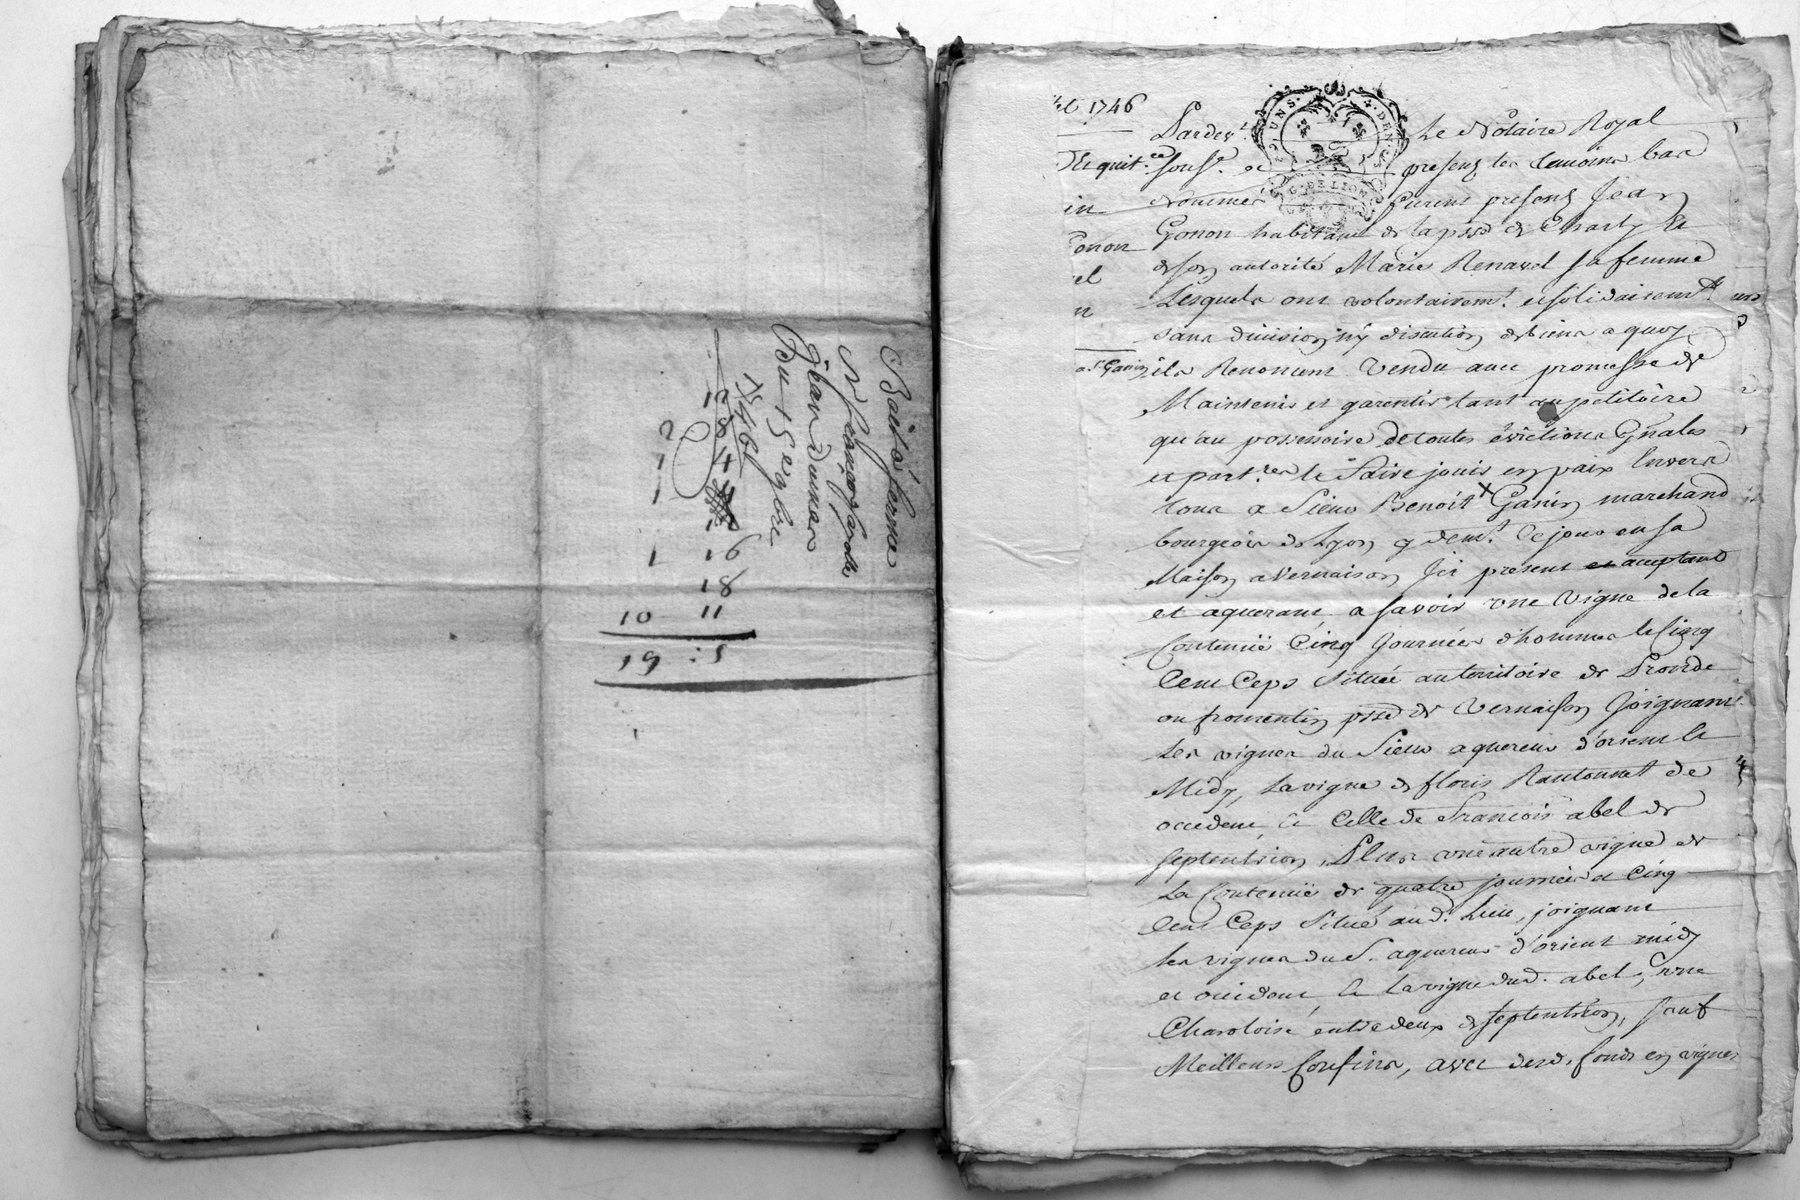 Bail à ferme
Du 15 e 9bre
1746
12
2
1
1
1 16
18
10 11
19
1746
Pardev.t Le Notaire Royal
Et quit.ce sous.e et presents les temoins bas
DEUX SOLS
G. DE LION
Nommés furent presents Jean
Gonon habitant de la psse de Charly Et
de son autorité Marie Renavel sa femme
Lesquels ont volontairem.t et solidairem.t
sans division ny discution de biens a quoy
ils Renoncent Vendu avec promesse de
Maintenir et garentir tant au petitoire
qu'au possessoire de toutes evictions Gnales
et part.res le faire jouir en paix Envers
tous a Sieur Benoit Ganin marchand
bourgeois de Lyon y dem.t Ce jour en sa
Maison a Vernaison Ici present et acceptant
et aquerant a savoir une Vigne de la
Contenüe Cinq Journées d'hommes le Cinq
Cent Ceps Située au territoire de
ou fromentin psse de Vernaison Joignant
les vignes du Sieur aquereur d'orient Et
Midy, la vigne de floris Rantonnet de
occident Et Celle de François abel de
septentrion, Plus une autre vigne de
La Contenüe de quatre journées et Cinq
Cent Ceps Situé aud. Lieu, joignant
les vignes du S. aquereur d'orient midy
et occident Et La vigne dud. abel, une
Charoloise entre deux de septentrion, sauf
Meilleurs Confins, avec desd. fonds en vignes